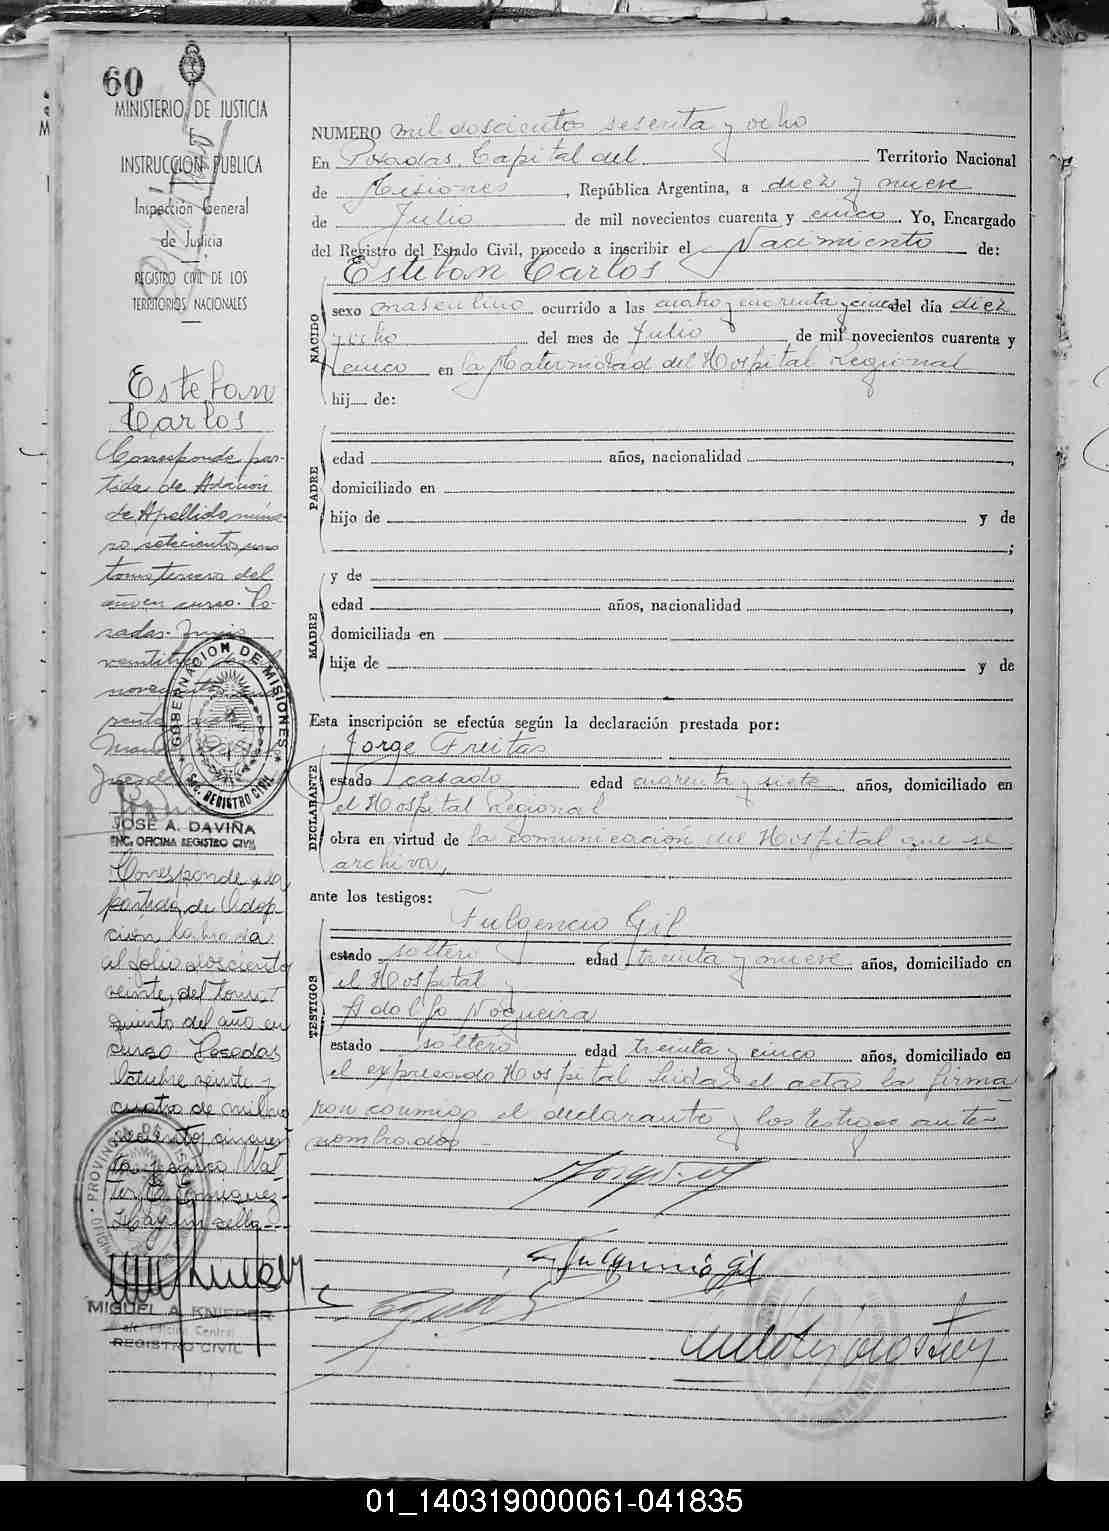 60
MINISTERIO DE JUSTICIA
INSTRUCCION PUBLICA
Inspección General
de Justicia
REGISTRO CIVIL DE LOS
TERRITORIOS NACIONALES
Esteban
Carlos
Corresponde par-
tida de Adicion
de Apellido núme-
ro setecientos uno
tomo tercero del
año en curso. Po-
sadas. Junio
veintitres
novecientos
GOBERNACION DE MISIONES
SEC. REGISTRO CIVIL
JOSÉ A. DAVIÑA
ENC. OFICINA REGISTRO CIVIL
Corresponde a la
partida de Adop-
ción labrada
al folio doscientos
veinte, del tomo
quinto del año en
curso Posadas
Octubre veinte y
cuatro de mil no
vecientos cincuen
ta y cinco
PROVINCIA DE MISIONES
MIGUEL A. KNIEPER
Jefe Oficina Central
REGISTRO CIVIL
NUMERO mil doscientos sesenta y ocho
En Posadas, Capital del Territorio Nacional
de Misiones, República Argentina, a diez y nueve
de Julio de mil novecientos cuarenta y cinco. Yo, Encargado
del Registro del Estado Civil, procedo a inscribir el Nacimiento de:
Esteban Carlos
NACIDO
sexo masculino ocurrido a las cuatro y cuarenta y cinco del día diez
y ocho del mes de Julio de mil novecientos cuarenta y
cinco en la Maternidad del Hospital Regional
hij de:
PADRE
edad años, nacionalidad ,
domiciliado en
hijo de y de
;
MADRE
y de
edad años, nacionalidad ,
domiciliada en
hija de y de
Esta inscripción se efectúa según la declaración prestada por:
Jorge Freitas
DECLARANTE
estado casado edad cuarenta y siete años, domiciliado en
el Hospital Regional
obra en virtud de la comunicación del Hospital que se
archiva,
ante los testigos:
Fulgencio Gil
TESTIGOS
estado soltero edad treinta y nueve años, domiciliado en
el Hospital y
Adolfo Nogueira
estado soltero edad treinta y cinco años, domiciliado en
el expresado Hospital Leída el acta la firma
ron conmigo el declarante y los testigos ante-
nombrados
Fulgencio Gil
01_140319000061-041835